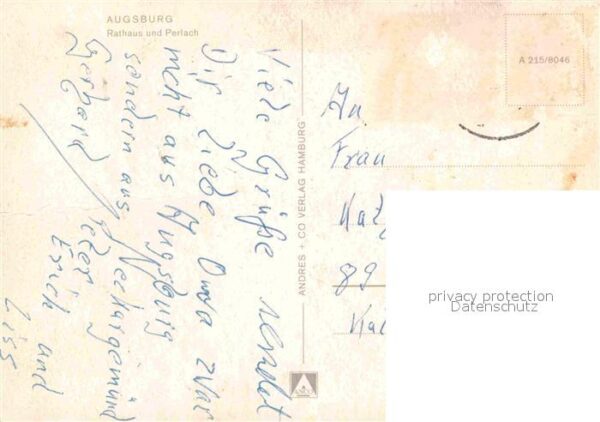 AUGSBURG
Rathaus und Perlach
Viele Grüße sendet
Dir liebe Oma zwar
nicht aus Augsburg
sondern aus Neckargemünd
Gerhard
Erich und
ANDRES + CO VERLAG HAMBURG
ANCO
A 215/8046
An
Frau
89
privacy protection
Datenschutz